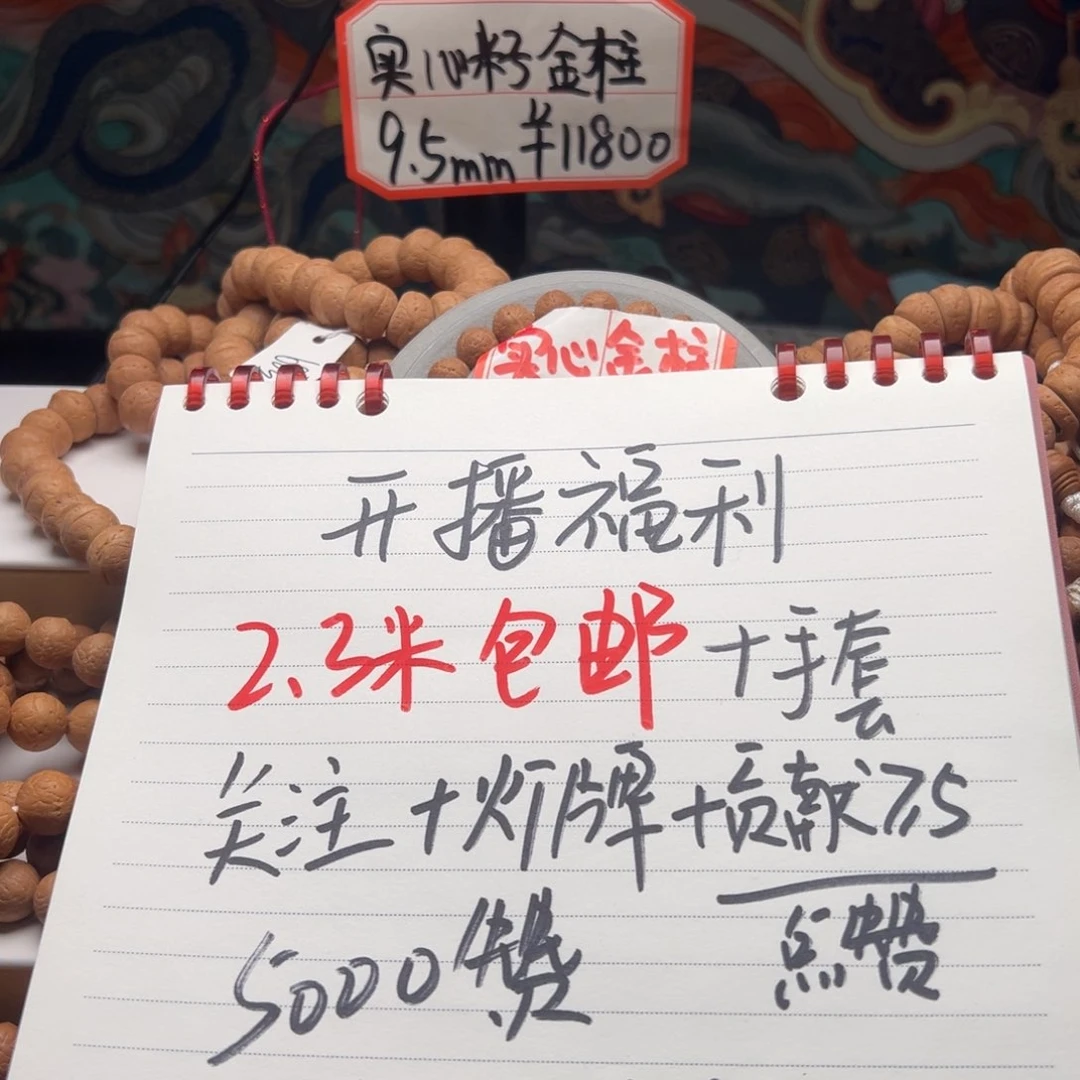 实心籽金柱
9.5mm ¥11800
实心金柱
开播福利
2.3米包邮+手套
关注+灯牌+贡献≥5
5000赞 点赞